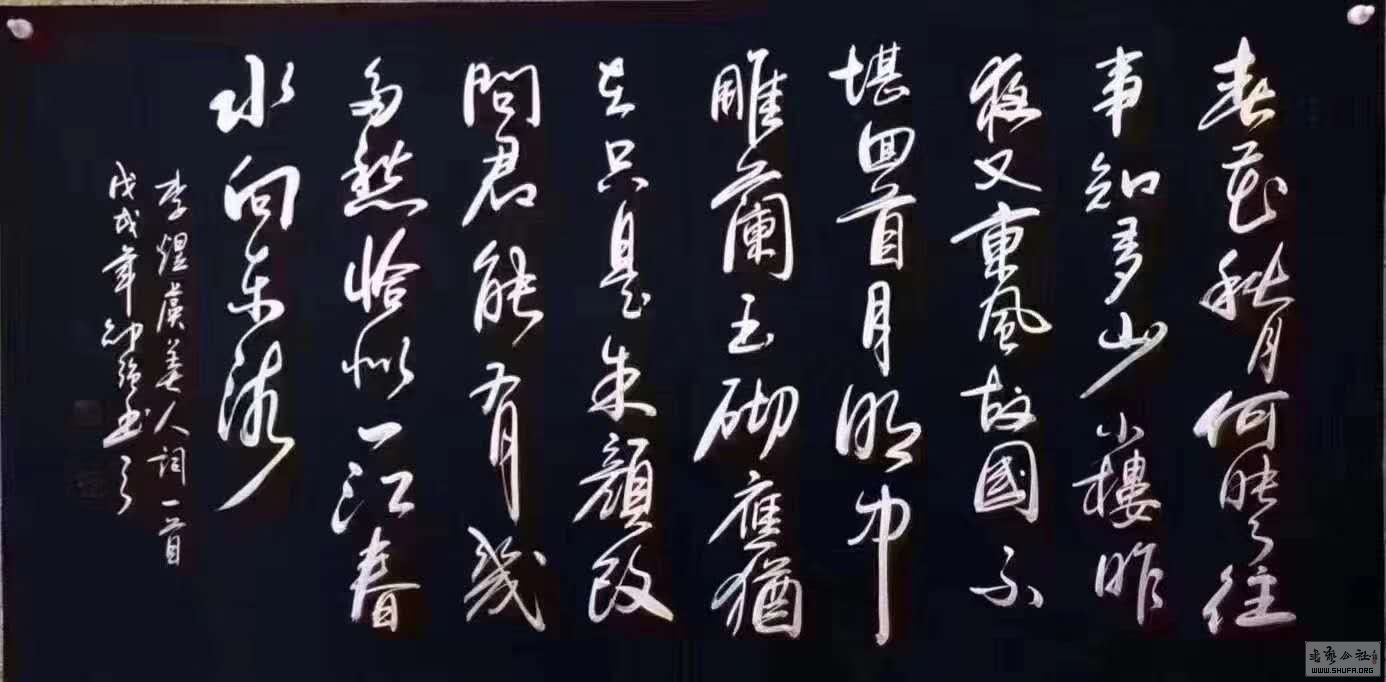 春花秋月何時了往
事知多少小樓昨
夜又東風故國不
堪回首月明中
雕蘭玉砌應猶
在只是朱顏改
問君能有幾
多愁恰似一江春
水向東流
李煜虞美人詞一首
戊戌年書之
書藝公社
WWW.SHUFA.ORG